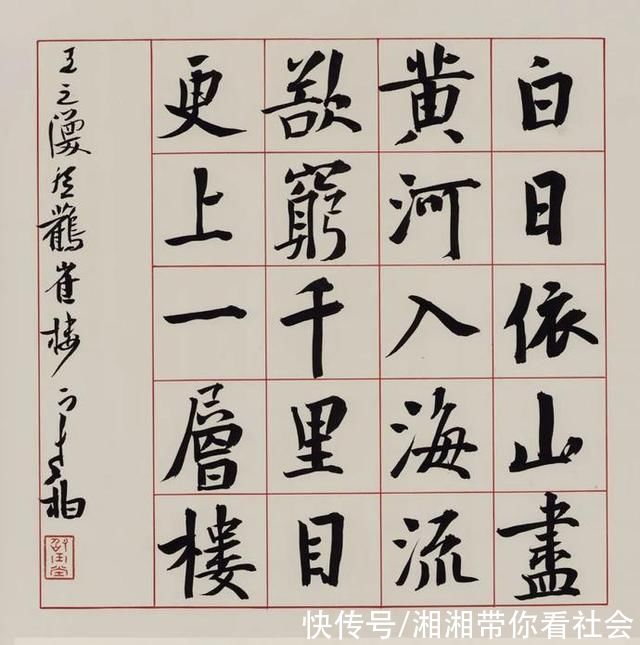 白日依山盡
黄河入海流
欲窮千里目
更上一層樓
王之渙登鸛雀楼
快传号/湘湘带你看社会